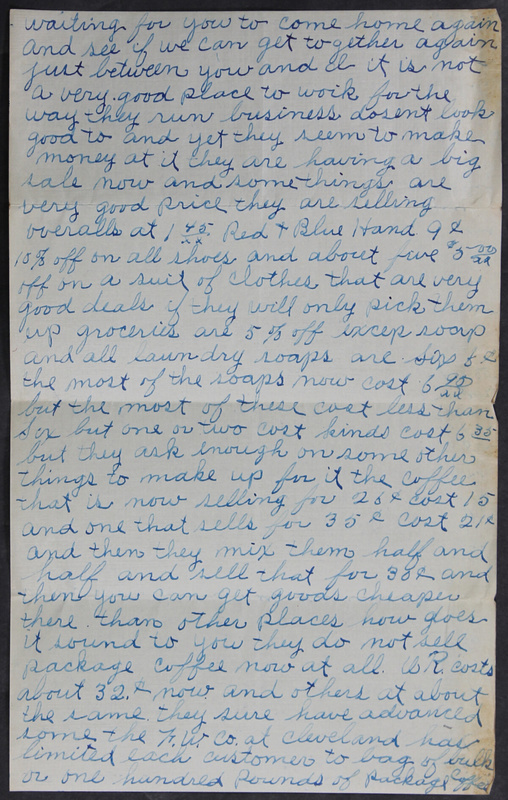 waiting for you to come home again
and see if we can get together again
just between you and I it is not
a very good place to work for the
way they run business dosent look
good to and yet they seem to make
money at it they are having a big
sale now and some things are
very good price they are selling
overalls at 1 45 Red & Blue Hand 9¢
10% off on all shoes and about five $5 00
off on a suit of clothes that are very
good deals if they will only pick them
up groceries are 5% off excep soap
and all laundry soaps are six 6¢
the most of the soaps now cost 6 90
but the most of these cost less than
six but one or two cost kinds cost 6 35
but they ask enough on some other
things to make up for it the coffee
that is now selling for 26¢ cost 15
and one that sells for 35¢ cost 21¢
and then they mix them half and
half and sell that for 30¢ and
then you can get goods cheaper
there. than other places how does
it sound to you they do not sell
package coffee now at all. W R. costs
about 32.¢ now and others at about
the same. they sure have advanced
some the W. Co. at Cleveland has
limited each customer to bag of bulk
or one hundred pounds of package Coffee